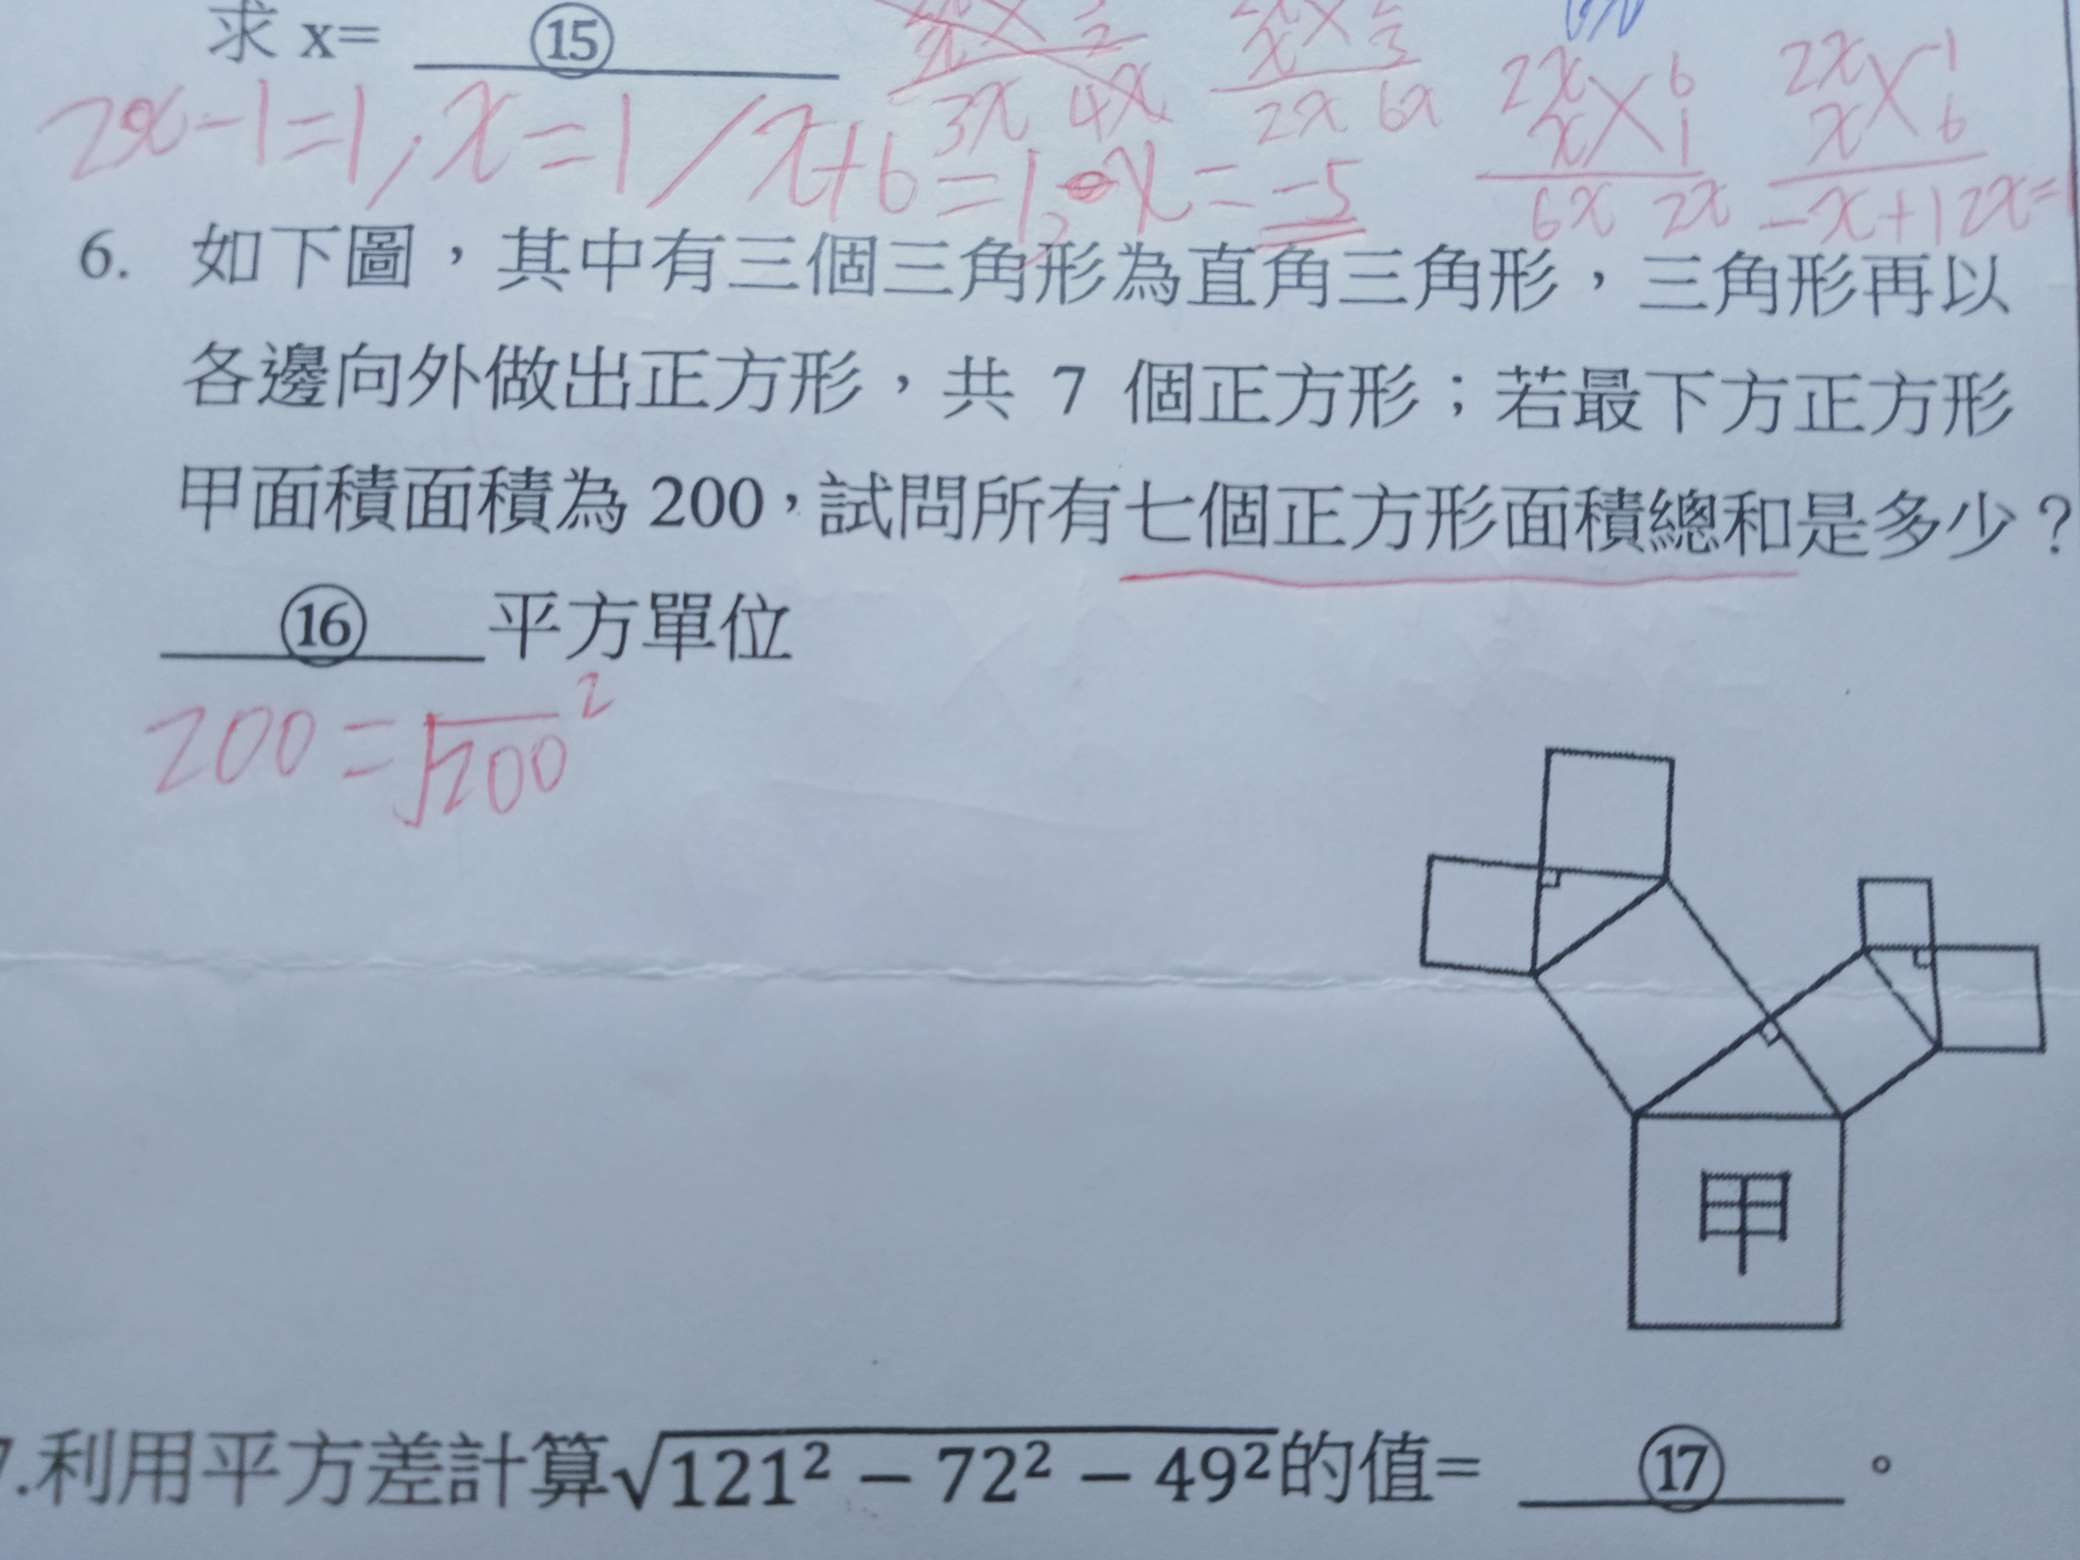 求 x= ⑮
2x-1=1, x=1 / x+6=1, x=-5
3x 4x
2x 6x
2x 6
x 1
6x 2x
2x -1
x 6
-x+12x=
6. 如下圖，其中有三個三角形為直角三角形，三角形再以
各邊向外做出正方形，共 7 個正方形；若最下方正方形
甲面積面積為 200，試問所有七個正方形面積總和是多少？
⑯ 平方單位
200=√200²
甲
7.利用平方差計算√121² − 72² − 49²的值= ⑰ 。